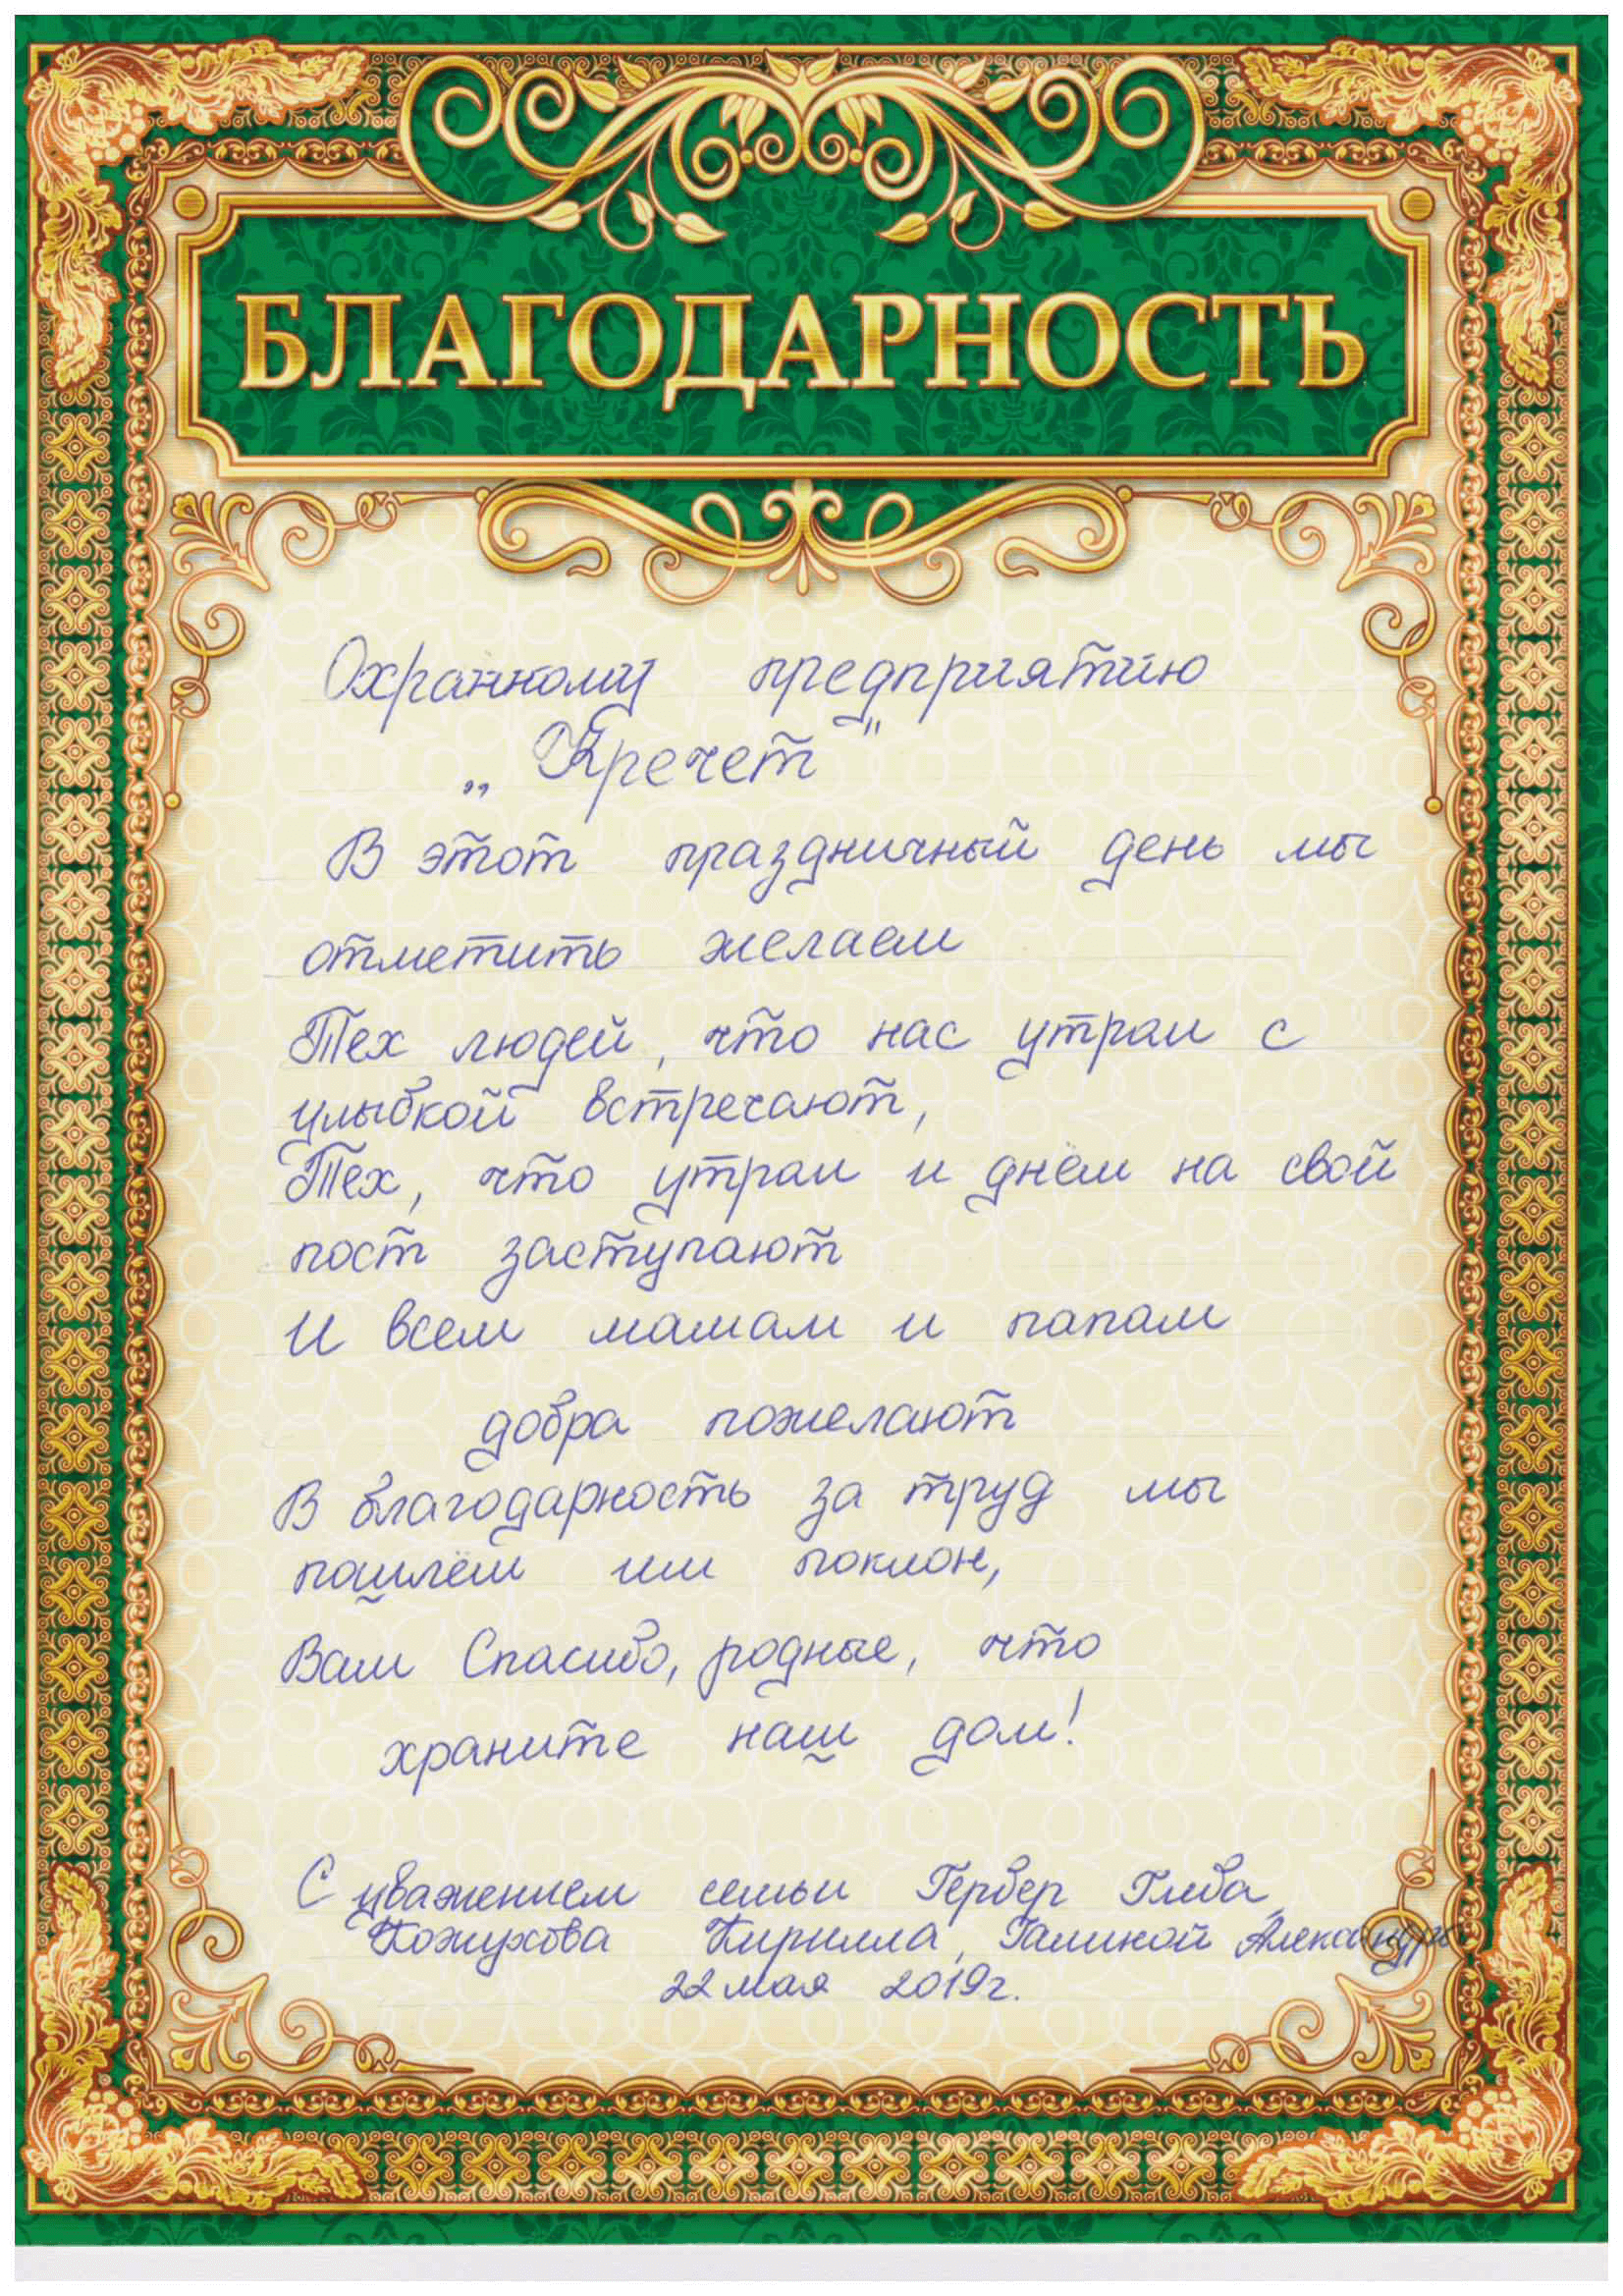 БЛАГОДАРНОСТЬ
Охранному предприятию
„Кречет"
В этот праздничный день мы
отметить желаем
Тех людей, что нас утрам с
улыбкой встречают,
Тех, что утрам и днём на свой
пост заступают
И всем мамам и папам
добра пожелают
В благодарность за труд мы
пошлём им поклон,
Вам Спасибо, родные, что
храните наш дом!
С уважением семьи Гербер Глеба,
Кожухова Кирилла, Галиной Александры
22 мая 2019г.